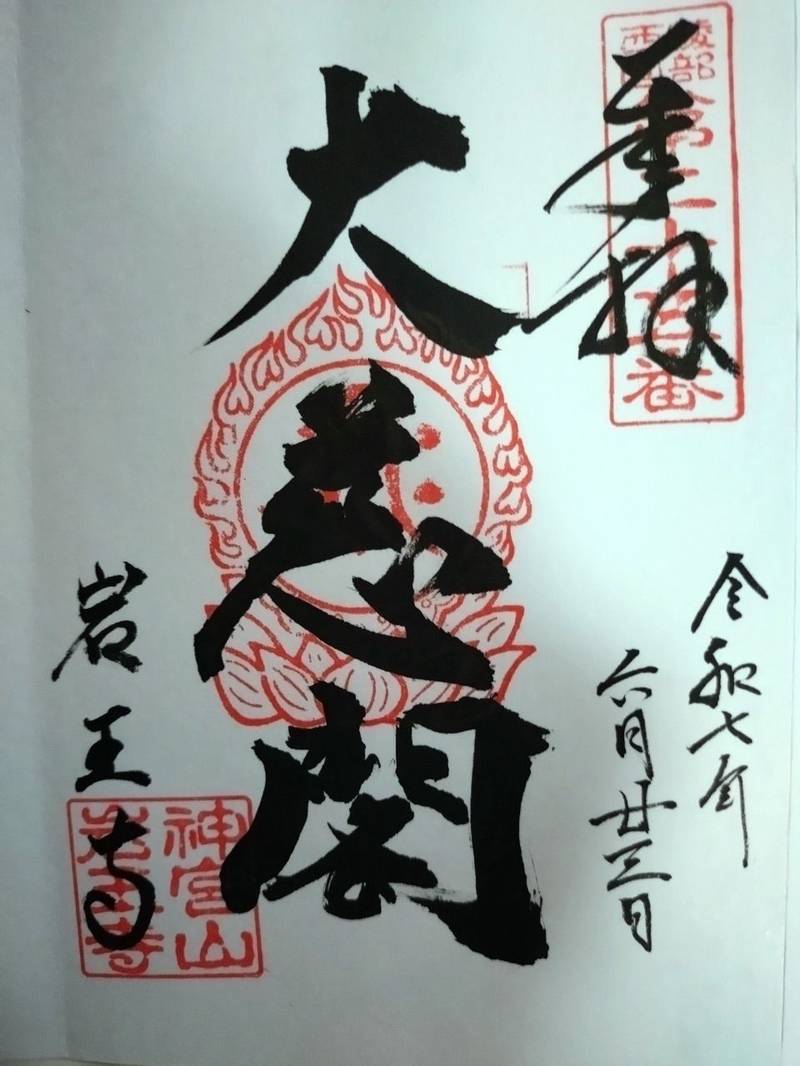 奉拝
綾部
西国
番
大悲閣
令和七年
六月廿三日
岩王寺
神宮山
岩王寺